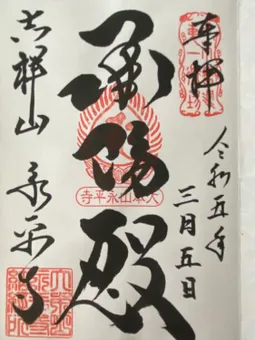 奉拝
令和五年
三月五日
承陽殿
大本山永平寺
吉祥山
永平寺